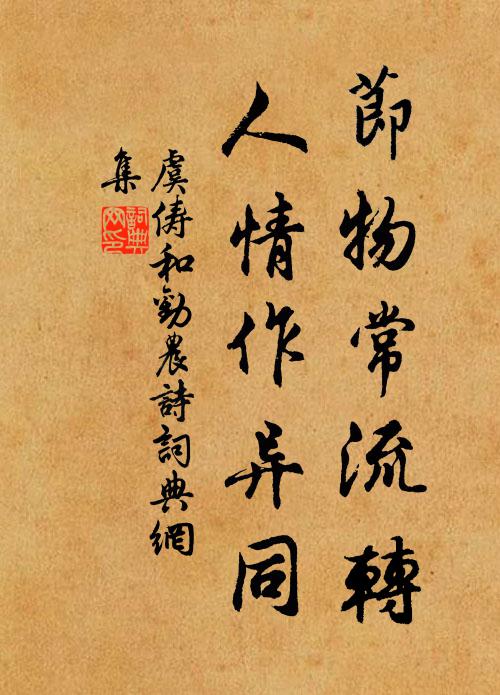 節物常流轉
人情作异同
虞儔和勸農詩詞典網
集
詞典
网印